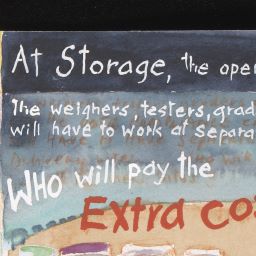 At Storage, the oper
The weighers, testers, grad
will have to work at separa
WHO will pay the
Extra cos